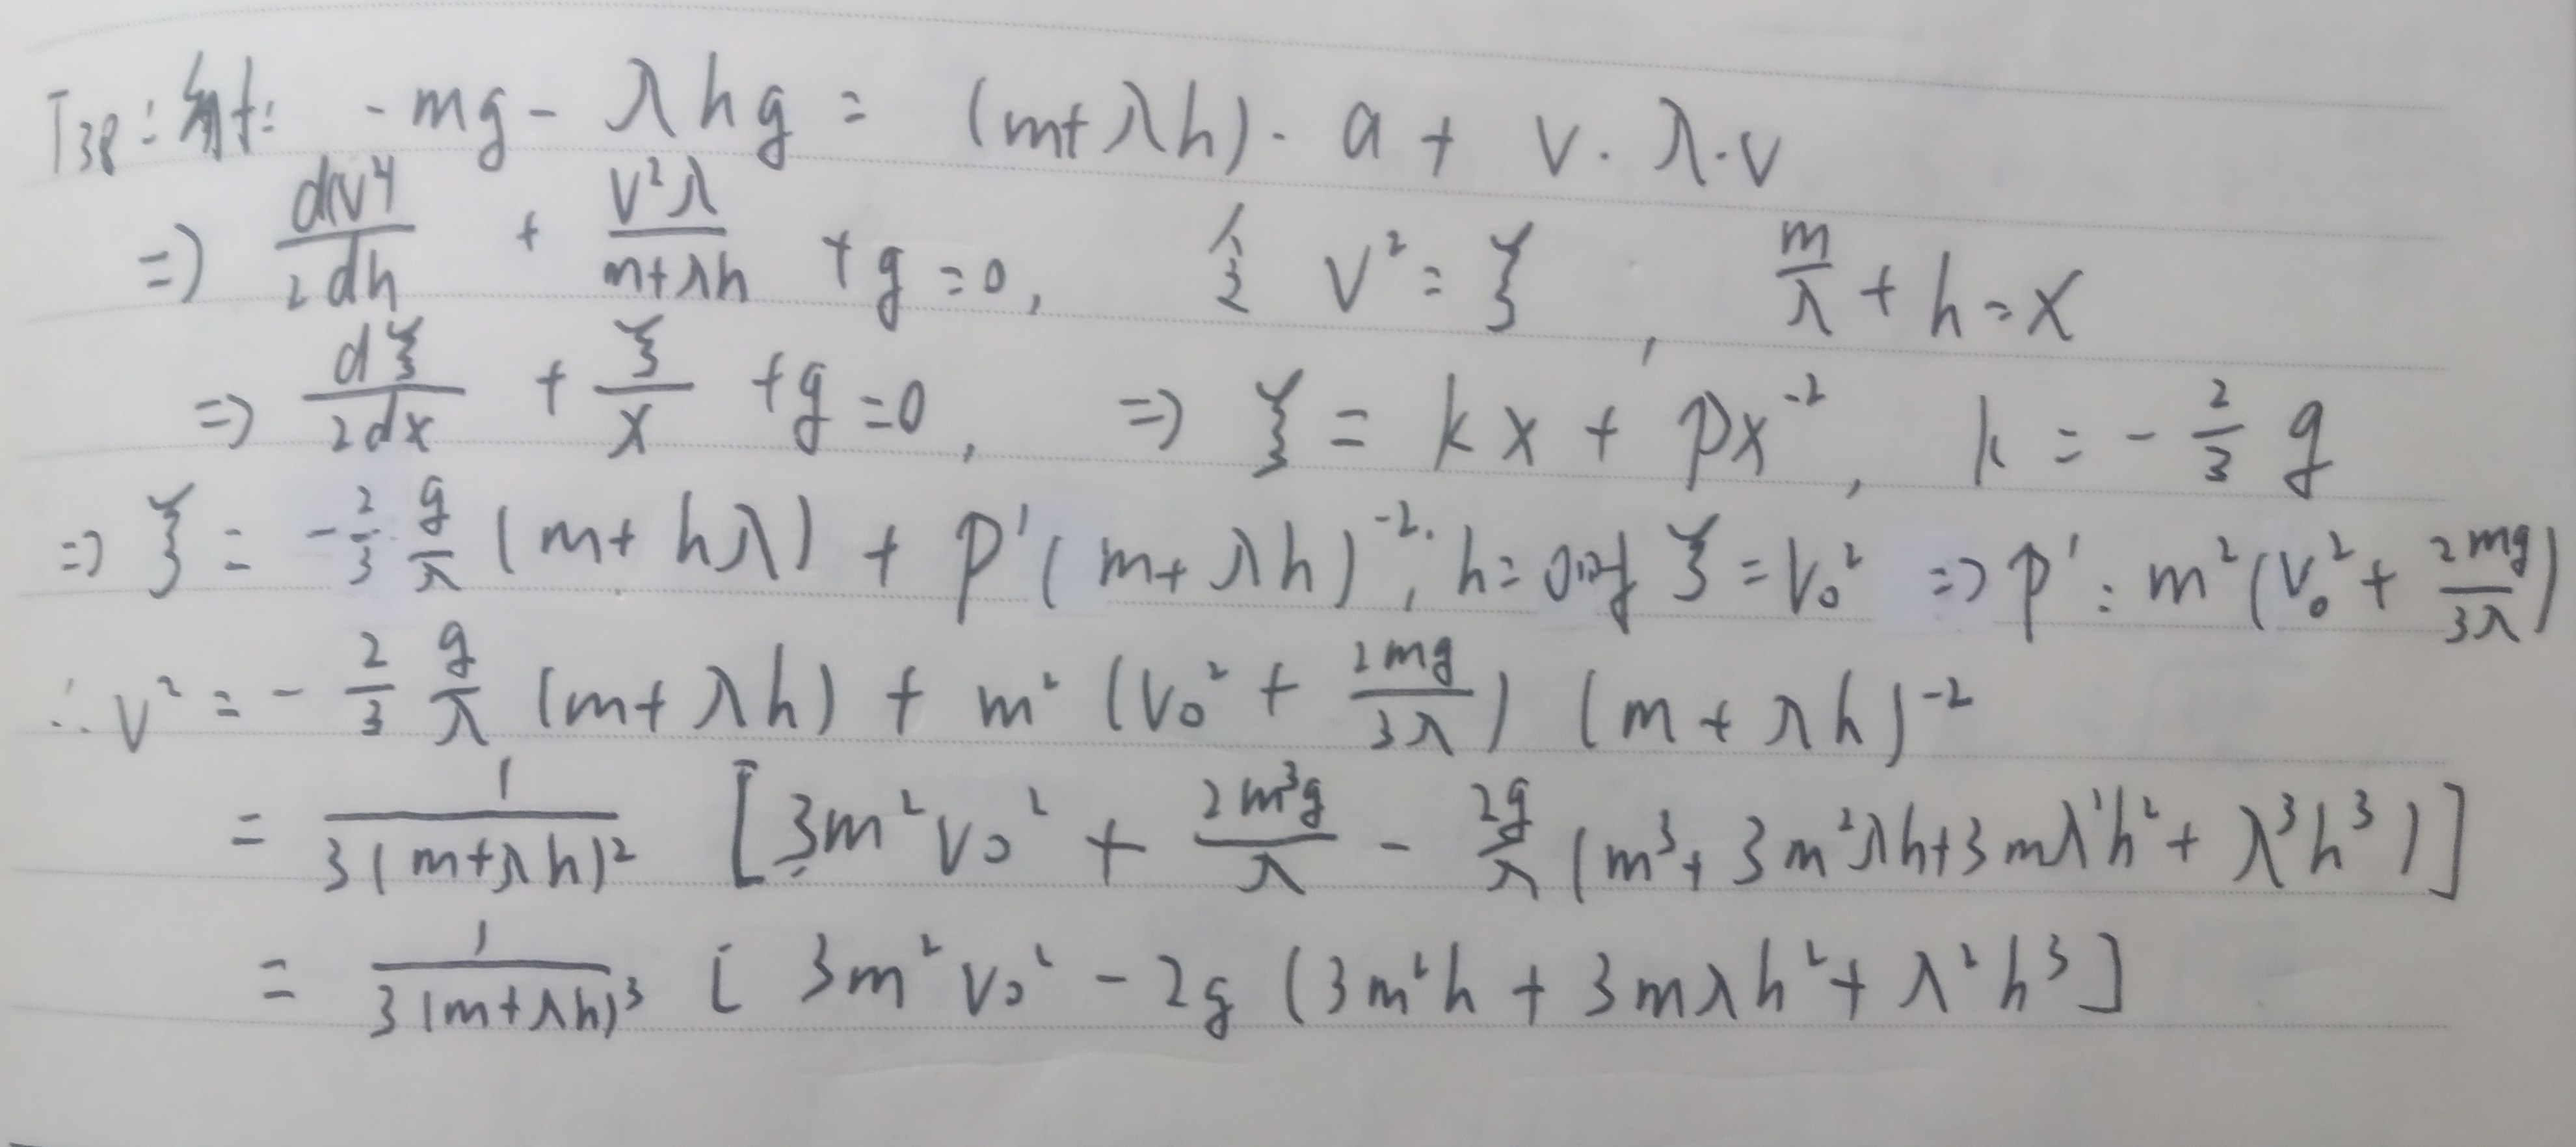 T38: -mg - λhg = (m+λh)·a + v·λ·v
=> d(v²)/2dh + v²λ/(m+λh) + g = 0, 令 v² = ξ, m/λ + h = x
=> dξ/2dx + ξ/x + g = 0, => ξ = kx + px⁻², k = -2/3 g
=> ξ = -2/3 g/λ (m+hλ) + p'(m+λh)⁻², h=0时 ξ = v₀² => p' = m²(v₀² + 2mg/3λ)
∴ v² = -2/3 g/λ (m+λh) + m²(v₀² + 2mg/3λ)(m+λh)⁻²
= 1/3(m+λh)² [3m²v₀² + 2m³g/λ - 2g/λ (m³+3m²λh+3mλ²h²+λ³h³)]
= 1/3(m+λh)³ [3m²v₀² - 2g(3m²h + 3mλh² + λ²h³]